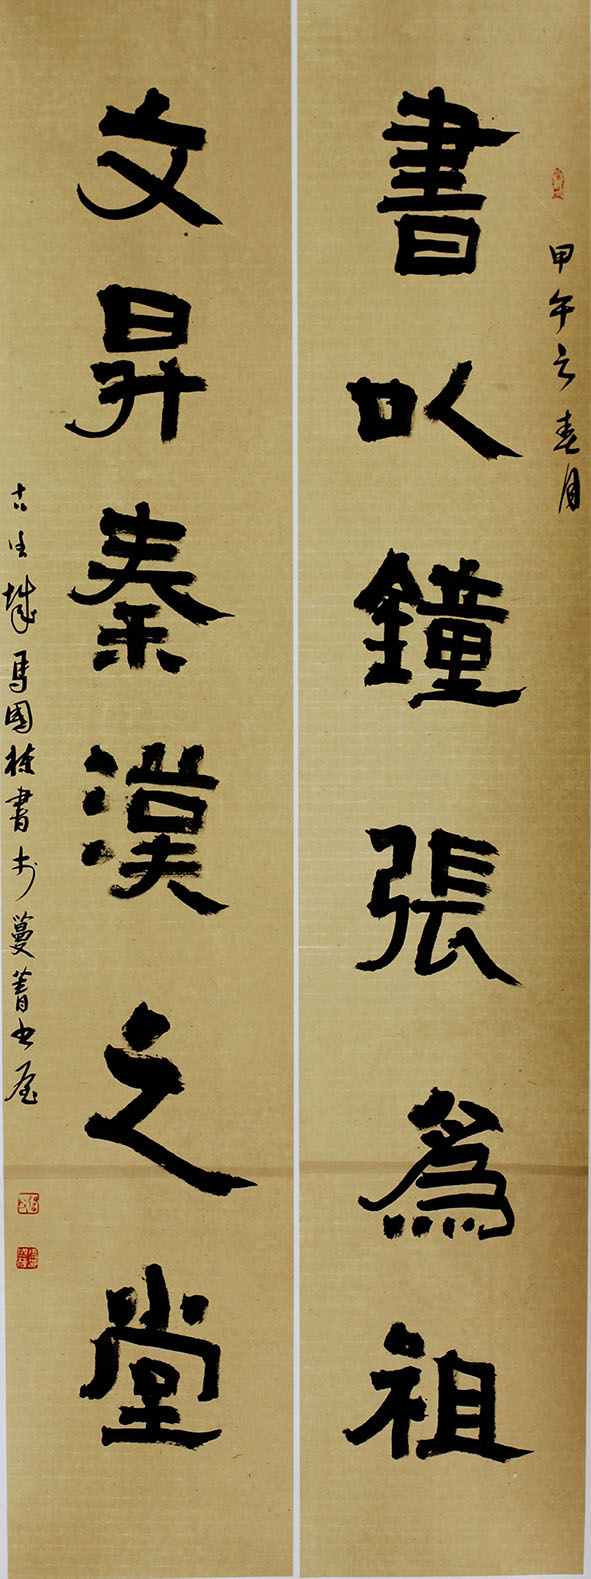 甲午之春月
書以鐘張為祖
文昇秦漢之堂
古生城馬國棟書於蔓菁書屋